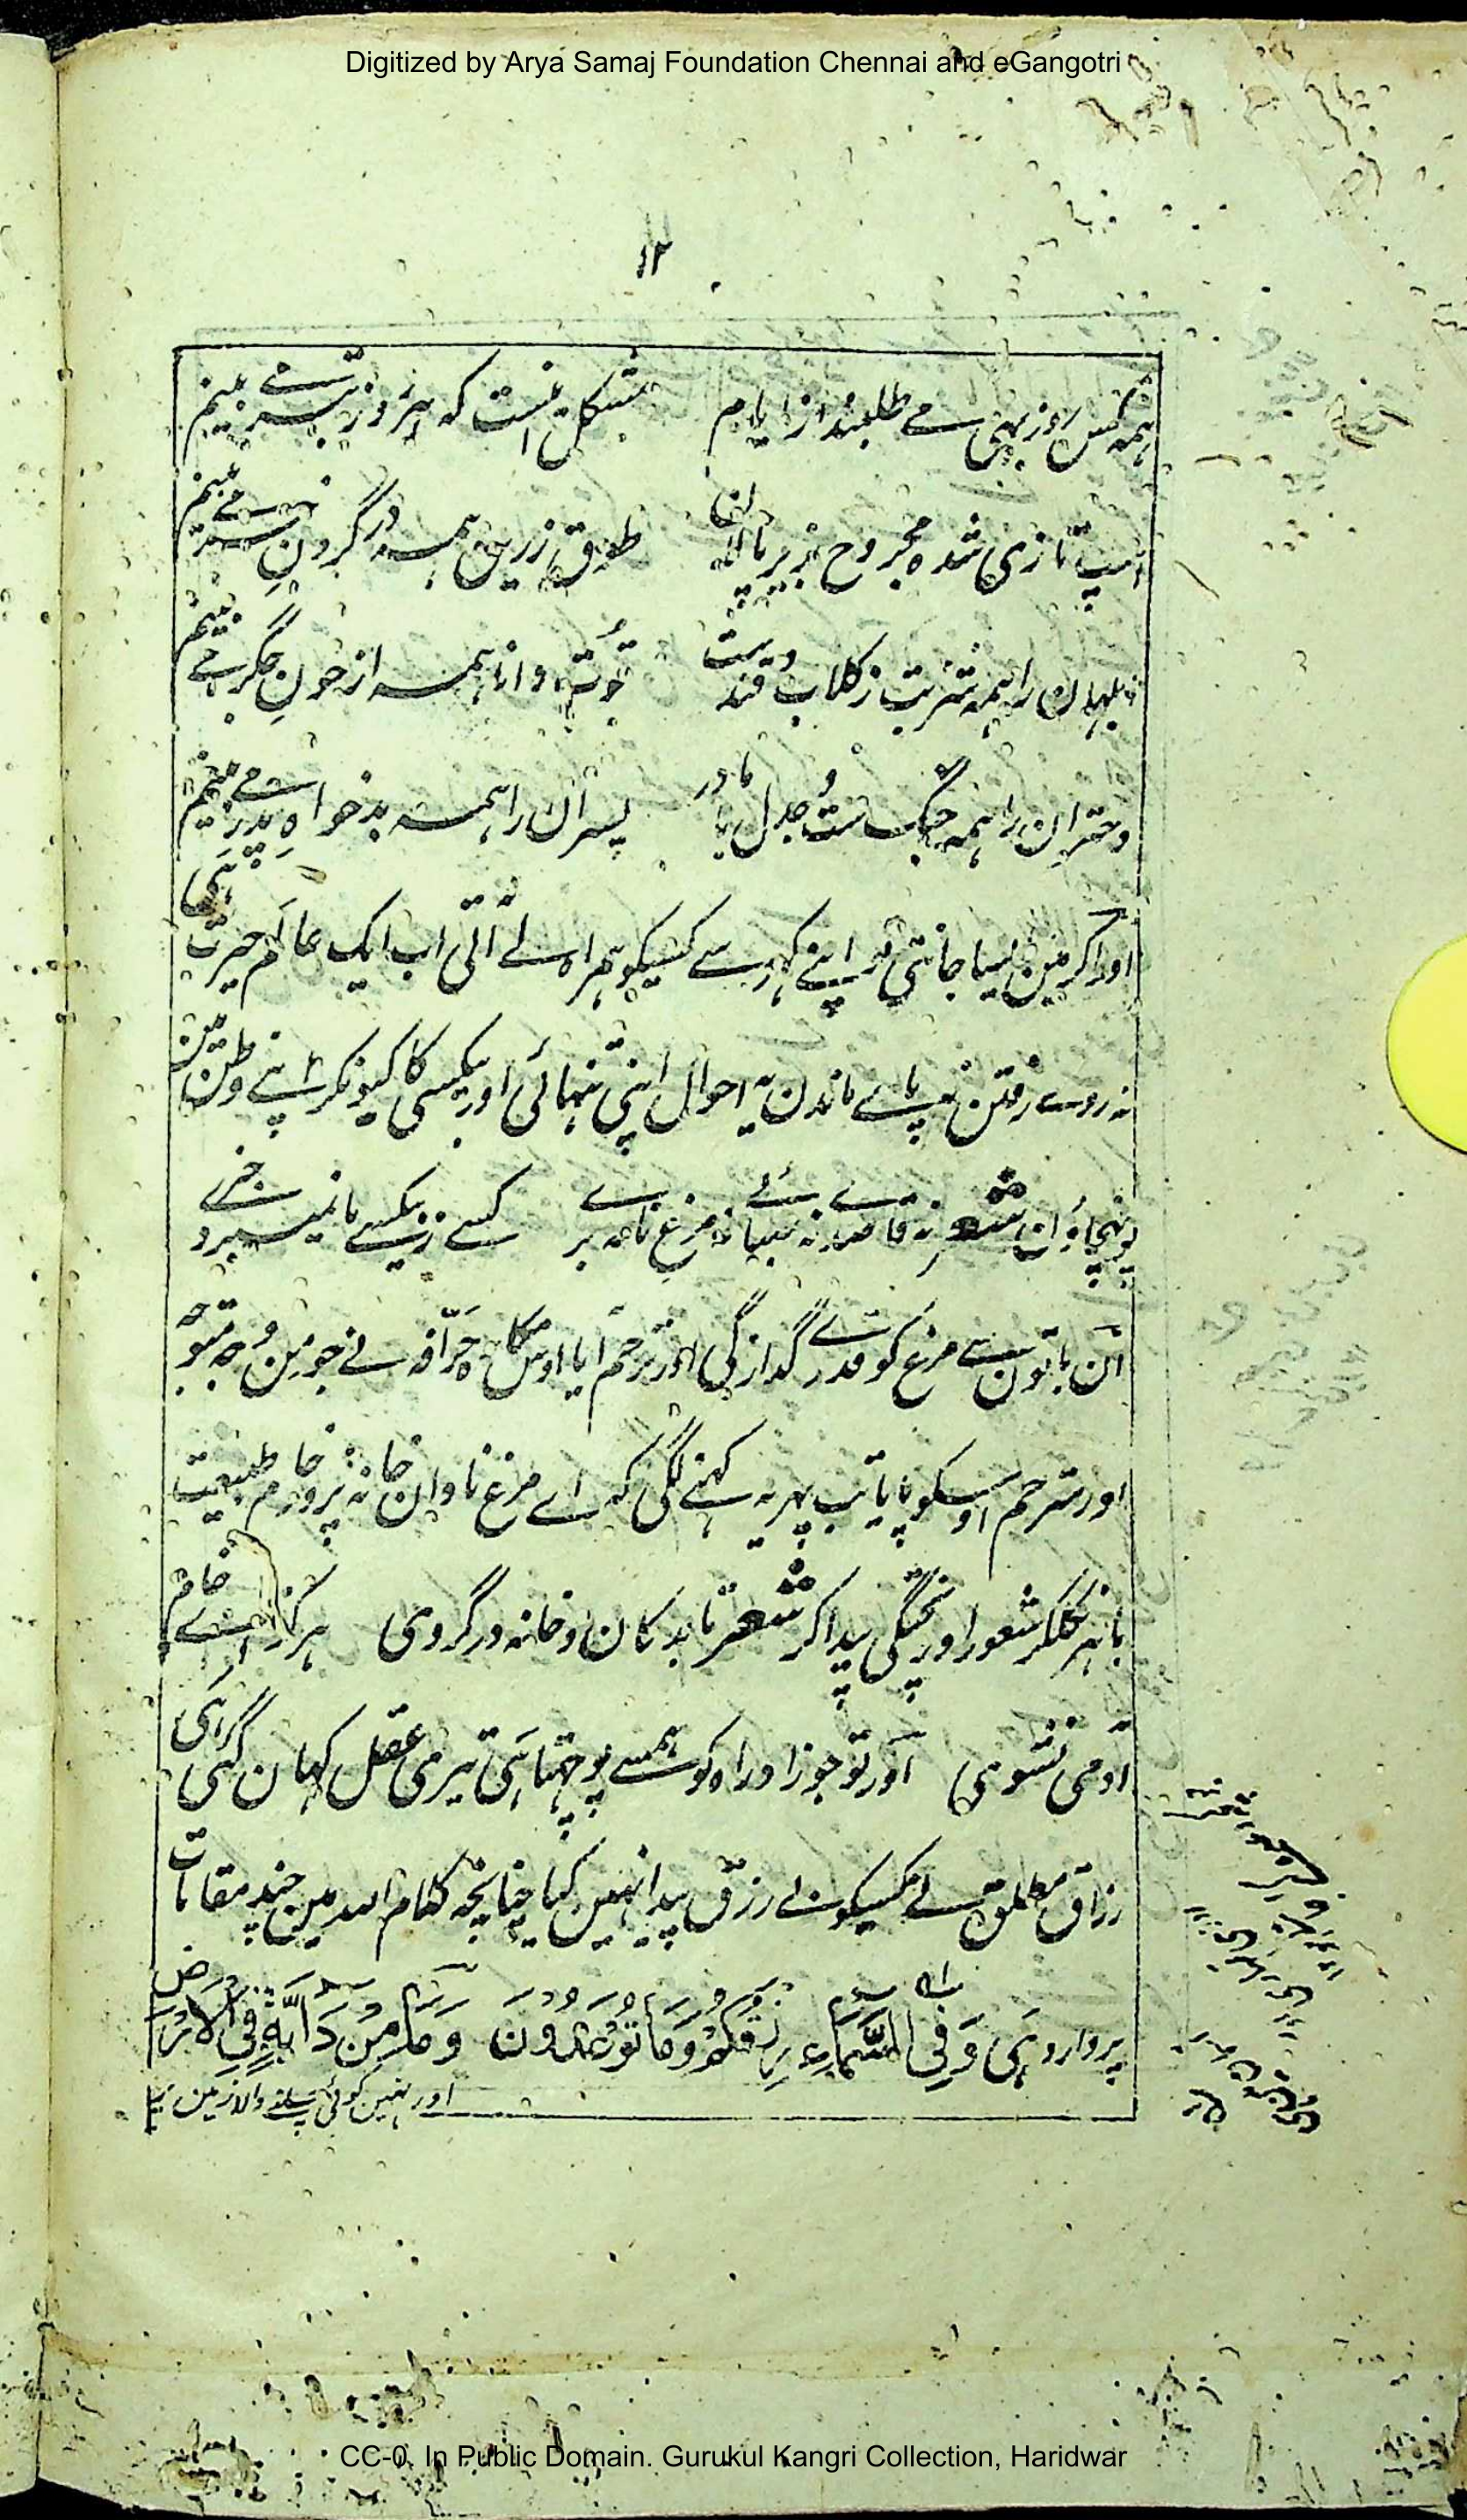 Digitized by Arya Samaj Foundation Chennai and eGangotri
۱۲
ہمہ کس روز بہی مے طلبند از ایام مشکل اینست کہ ہر روز بتر مے بینم
اسپ تازی شدہ مجروح بزیر پالان طوق زرین ہمہ در گردن خر مے بینم
ابلہان را ہمہ شربت ز گلاب و قندست قوت دانا ہمہ از خون جگر مے بینم
دختران را ہمہ جنگ ست و جدل با مادر پسران را ہمہ بدخواہ پدر مے بینم
اور اگر مین ایسا جانتی تو اپنے گہر سے کسیکو ہمراہ لے آتی اب ایک عالم حیرت ہی
نہ روے رفتن نہ پاے ماندن یہ احوال اپنی تنہائی اور بیکسی کا کیونکر اپنے وطن مین
پونہچاؤن شعر نہ قاصدے نہ صباے نہ مرغ نامہ برے کسے ز بیکسے ما نمیبرد خبرے
ان باتون سے مرغ کو قدرے گدازگی اور ترحم آیا اوس مکارہ حرافہ نے جو مرغ متوجہ
اور مترحم اوسکو پایا تب پہر یہ کہنے لگی کہ اے مرغ نادان خانہ پرور خام طبیعت
باہر نکلکر شعور اور پختگی پیدا کر شعر تا بدکان و خانہ در گروی ہرگز اے خام
آدمی نشوی اور تو جو زاد راہ کو ہمسے پوچہتا ہی تیری عقل کہان گئی گر ہی
رزاق مطلق نے کسیکو بے رزق پیدا نہیں کیا چنانچہ کلام اللہ میں چند مقامات
پر وارد ہی وَفِي السَّمَاءِ رِزْقُكُمْ وَمَا تُوعَدُونَ وَمَا مِنْ دَابَّةٍ فِي الْأَرْضِ
اور نہین کوئی چلنے والا زمین
CC-0. In Public Domain. Gurukul Kangri Collection, Haridwar